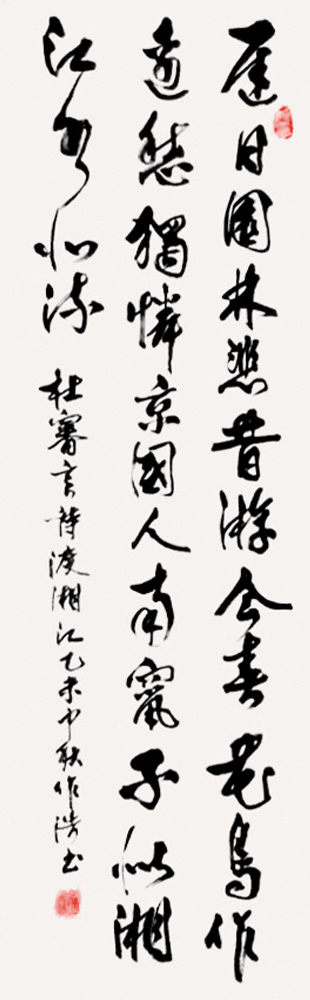 遲日園林悲昔游今春花鳥作
邊愁獨憐京國人南竄不似湘
江水北流
杜審言詩渡湘江乙未中秋作浩书